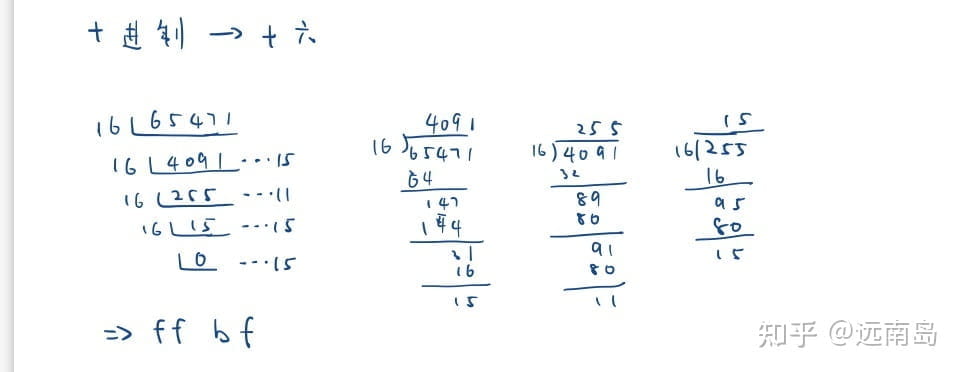 十进制 → 十六
16 65471
16 4091 ...15
16 255 ...11
16 15 ...15
0 ...15
4091
16)65471
64
147
144
31
16
15
255
16)4091
32
89
80
91
80
11
15
16(255
16
95
80
15
=> ff bf
知乎 @远南岛